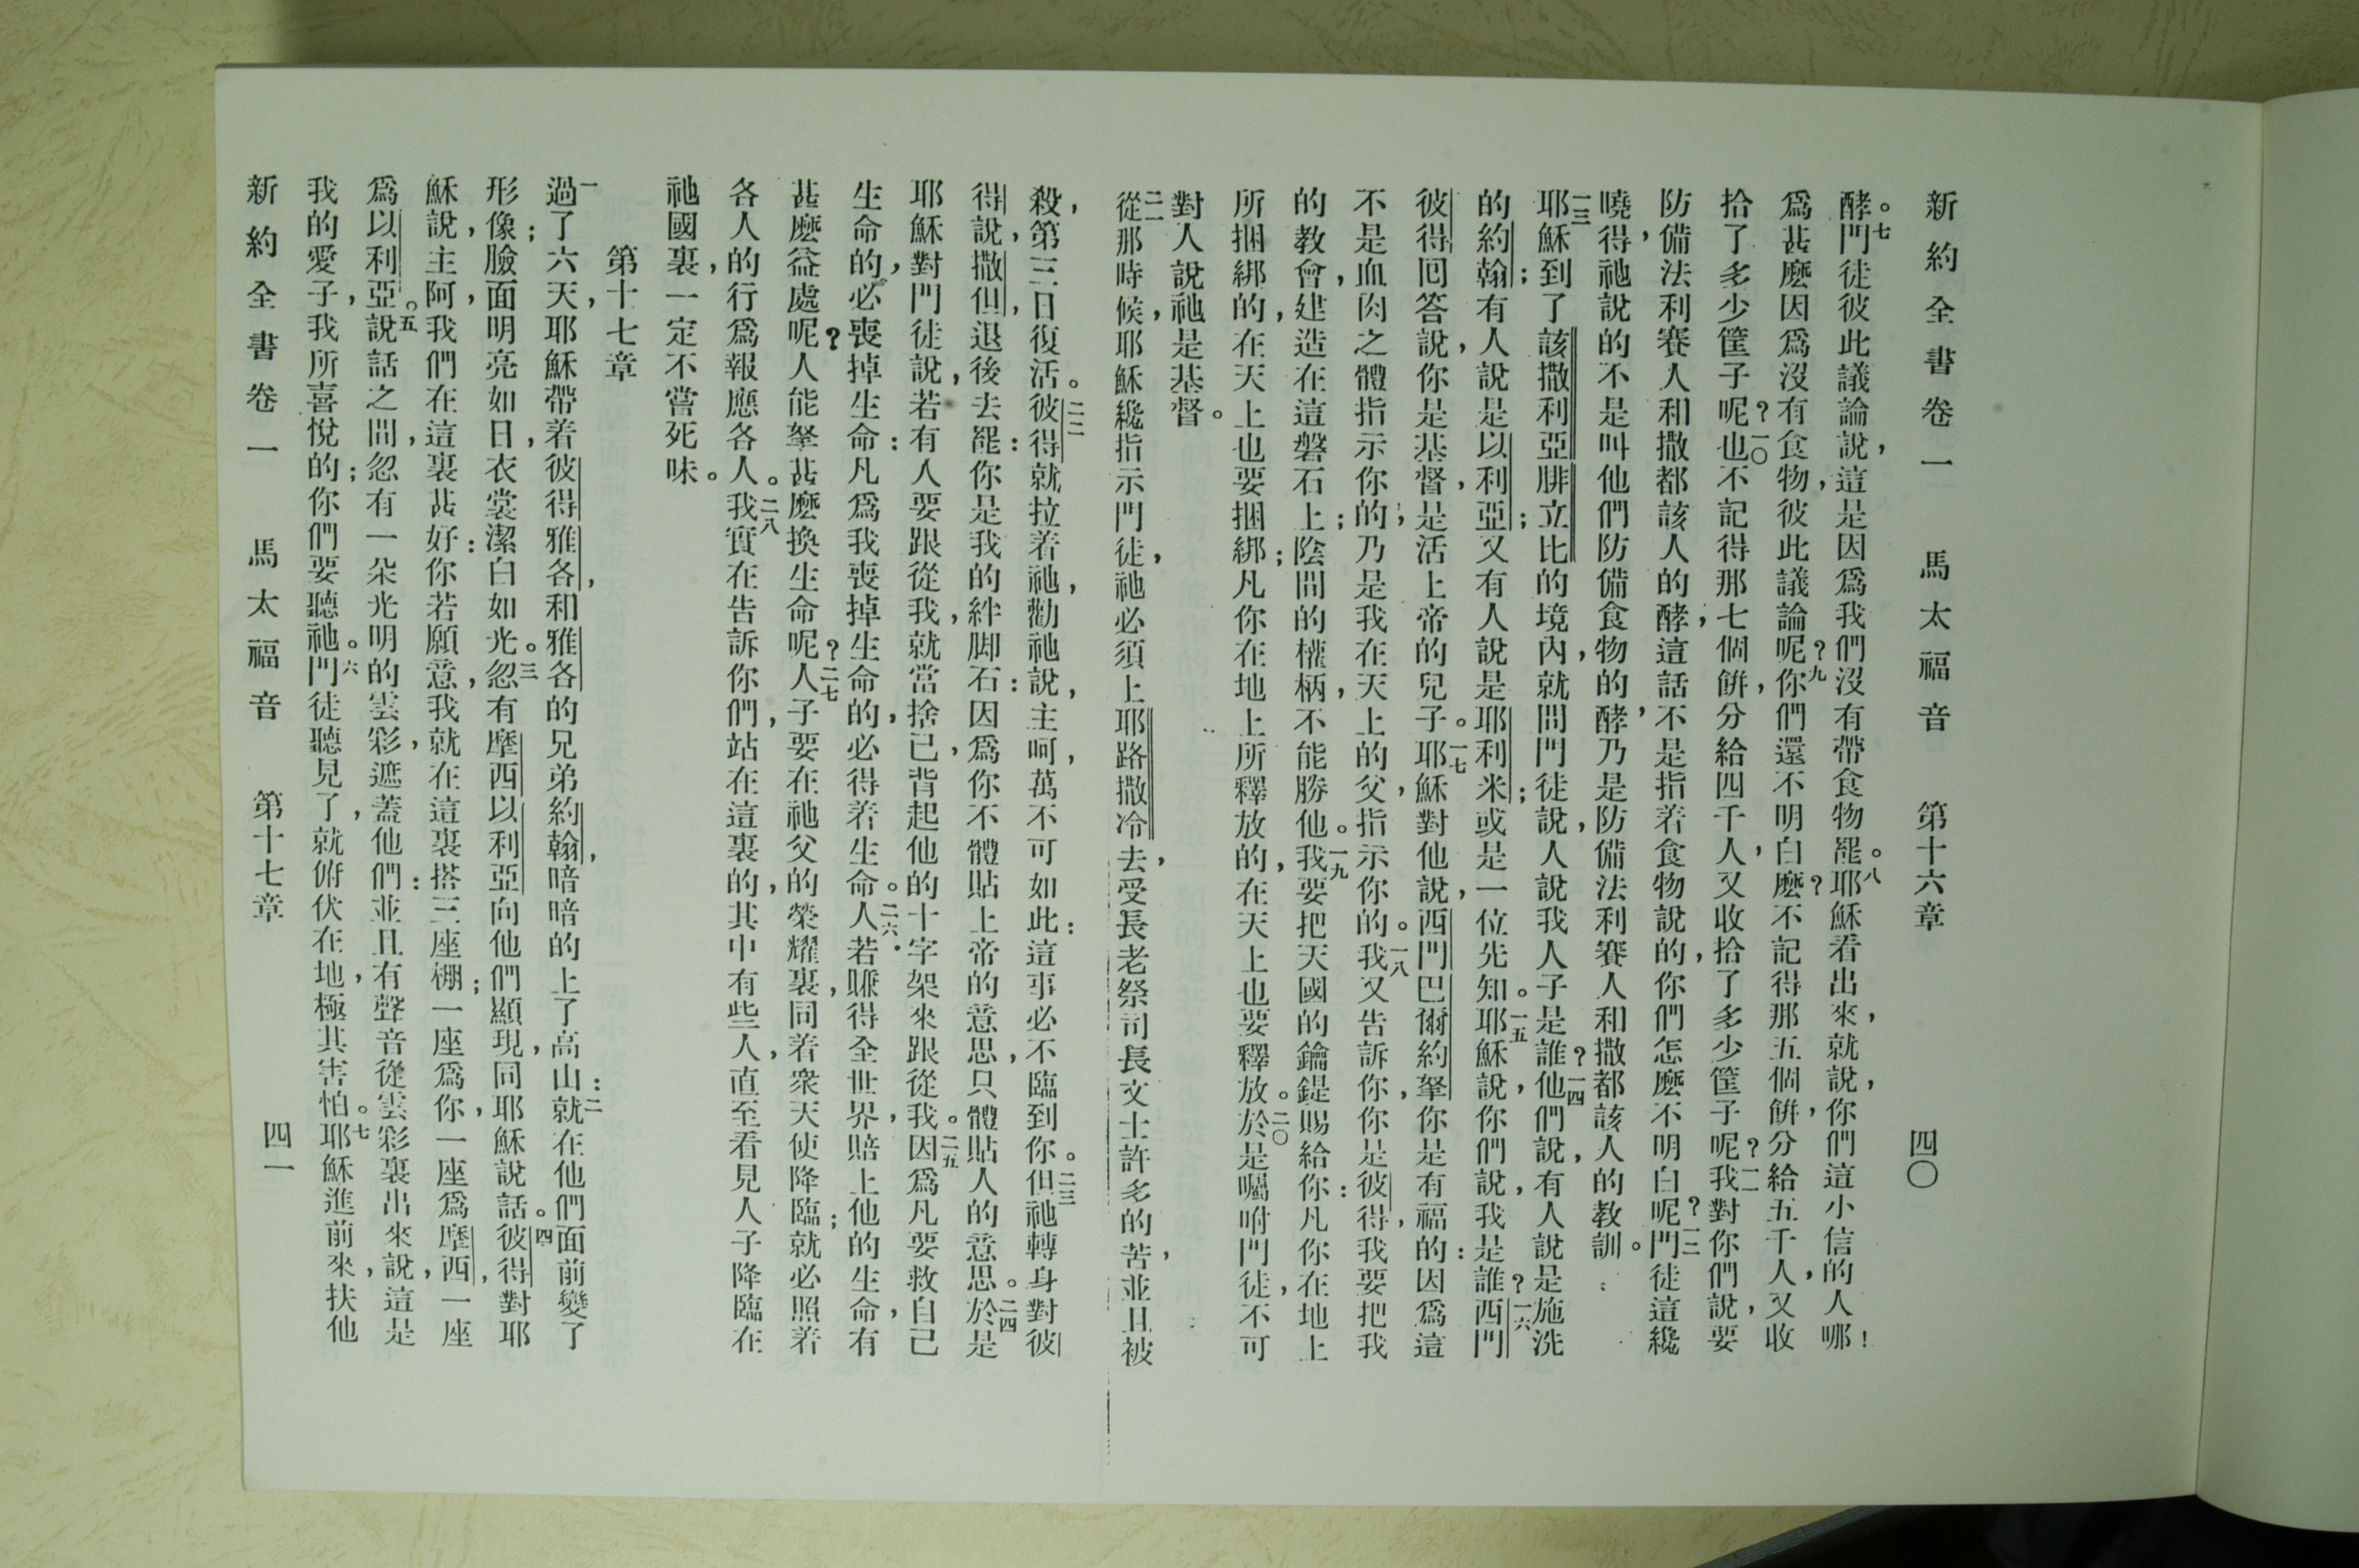 新約全書卷一 馬太福音 第十六章 四〇
酵。七門徒彼此議論說，這是因爲我們沒有帶食物罷。八耶穌看出來，就說，你們這小信的人哪！
爲甚麼因爲沒有食物，彼此議論呢？九你們還不明白麼？不記得那五個餠，分給五千人，又收
拾了多少筐子呢？一〇也不記得那七個餠，分給四千人，又收拾了多少筐子呢？一一我對你們說，要
防備法利賽人和撒都該人的酵，這話不是指着食物說的，你們怎麼不明白呢？一二門徒這纔
曉得，祂說的不是叫他們防備食物的酵，乃是防備法利賽人和撒都該人的教訓。
一三耶穌到了該撒利亞腓立比的境內，就問門徒說，人說我人子是誰？一四他們說，有人說是施洗
的約翰；有人說是以利亞；又有人說是耶利米；或是一位先知。一五耶穌說，你們說，我是誰？一六西門
彼得回答說，你是基督，是活上帝的兒子。一七耶穌對他說，西門巴爾約拏，你是有福的：因爲這
不是血肉之體指示你的，乃是我在天上的父，指示你的。一八我又告訴你，你是彼得，我要把我
的教會，建造在這磐石上；陰間的權柄，不能勝他。一九我要把天國的鑰鍉賜給你：凡你在地上
所捆綁的，在天上也要捆綁；凡你在地上所釋放的，在天上也要釋放。二〇於是囑咐門徒，不可
對人說祂是基督。
二一從那時候，耶穌纔指示門徒，祂必須上耶路撒冷去，受長老祭司長文士許多的苦，並且被
殺，第三日復活。二二彼得就拉着祂，勸祂說，主呵，萬不可如此：這事必不臨到你。二三但祂轉身對彼
得說，撒但，退後去罷：你是我的絆脚石：因爲你不體貼上帝的意思，只體貼人的意思。二四於是
耶穌對門徒說，若有人要跟從我，就當捨己，背起他的十字架來跟從我。二五因爲凡要救自己
生命的，必喪掉生命：凡爲我喪掉生命的，必得着生命。二六人若賺得全世界，賠上他的生命，有
甚麼益處呢？人能拏甚麼換生命呢？二七人子要在祂父的榮耀裏，同着衆天使降臨；就必照着
各人的行爲報應各人。二八我實在告訴你們，站在這裏的，其中有些人，直至看見人子降臨在
祂國裏，一定不嘗死味。
第十七章
一過了六天，耶穌帶着彼得雅各，和雅各的兄弟約翰，暗暗的上了高山：二就在他們面前變了
形像；臉面明亮如日，衣裳潔白如光。三忽有摩西以利亞向他們顯現，同耶穌說話。四彼得對耶
穌說，主阿，我們在這裏甚好：你若願意，我就在這裏搭三座棚；一座爲你，一座爲摩西，一座
爲以利亞。五說話之間，忽有一朵光明的雲彩，遮蓋他們：並且有聲音從雲彩裏出來說，這是
我的愛子，我所喜悅的；你們要聽祂。六門徒聽見了，就俯伏在地，極其害怕。七耶穌進前來，扶他
新約全書卷一 馬太福音 第十七章 四一